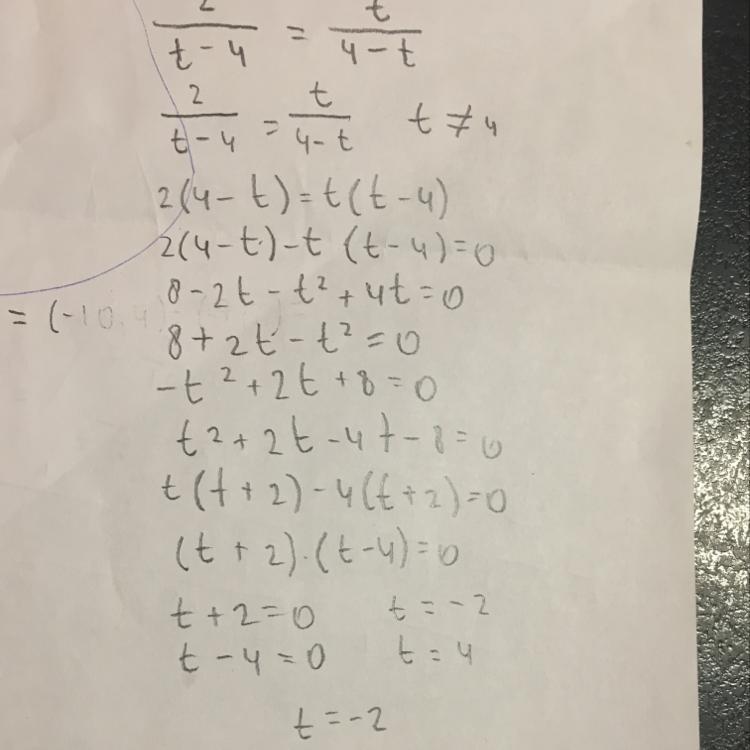 2/(t-4) = t/(4-t)
2/(t-4) = t/(4-t)   t ≠ 4
2(4-t)=t(t-4)
2(4-t)-t(t-4)=0
8-2t-t²+4t=0
= (-10,4)
8+2t-t²=0
-t²+2t+8=0
t²+2t-4t-8=0
t(t+2)-4(t+2)=0
(t+2)·(t-4)=0
t+2=0   t=-2
t-4=0   t=4
t=-2